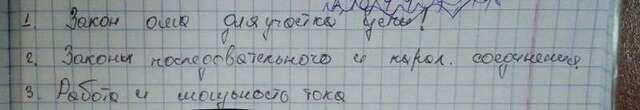 1. Закон ома для участка цепи!
2. Законы последовательного и парал. соединения
3. Работа и мощьность тока